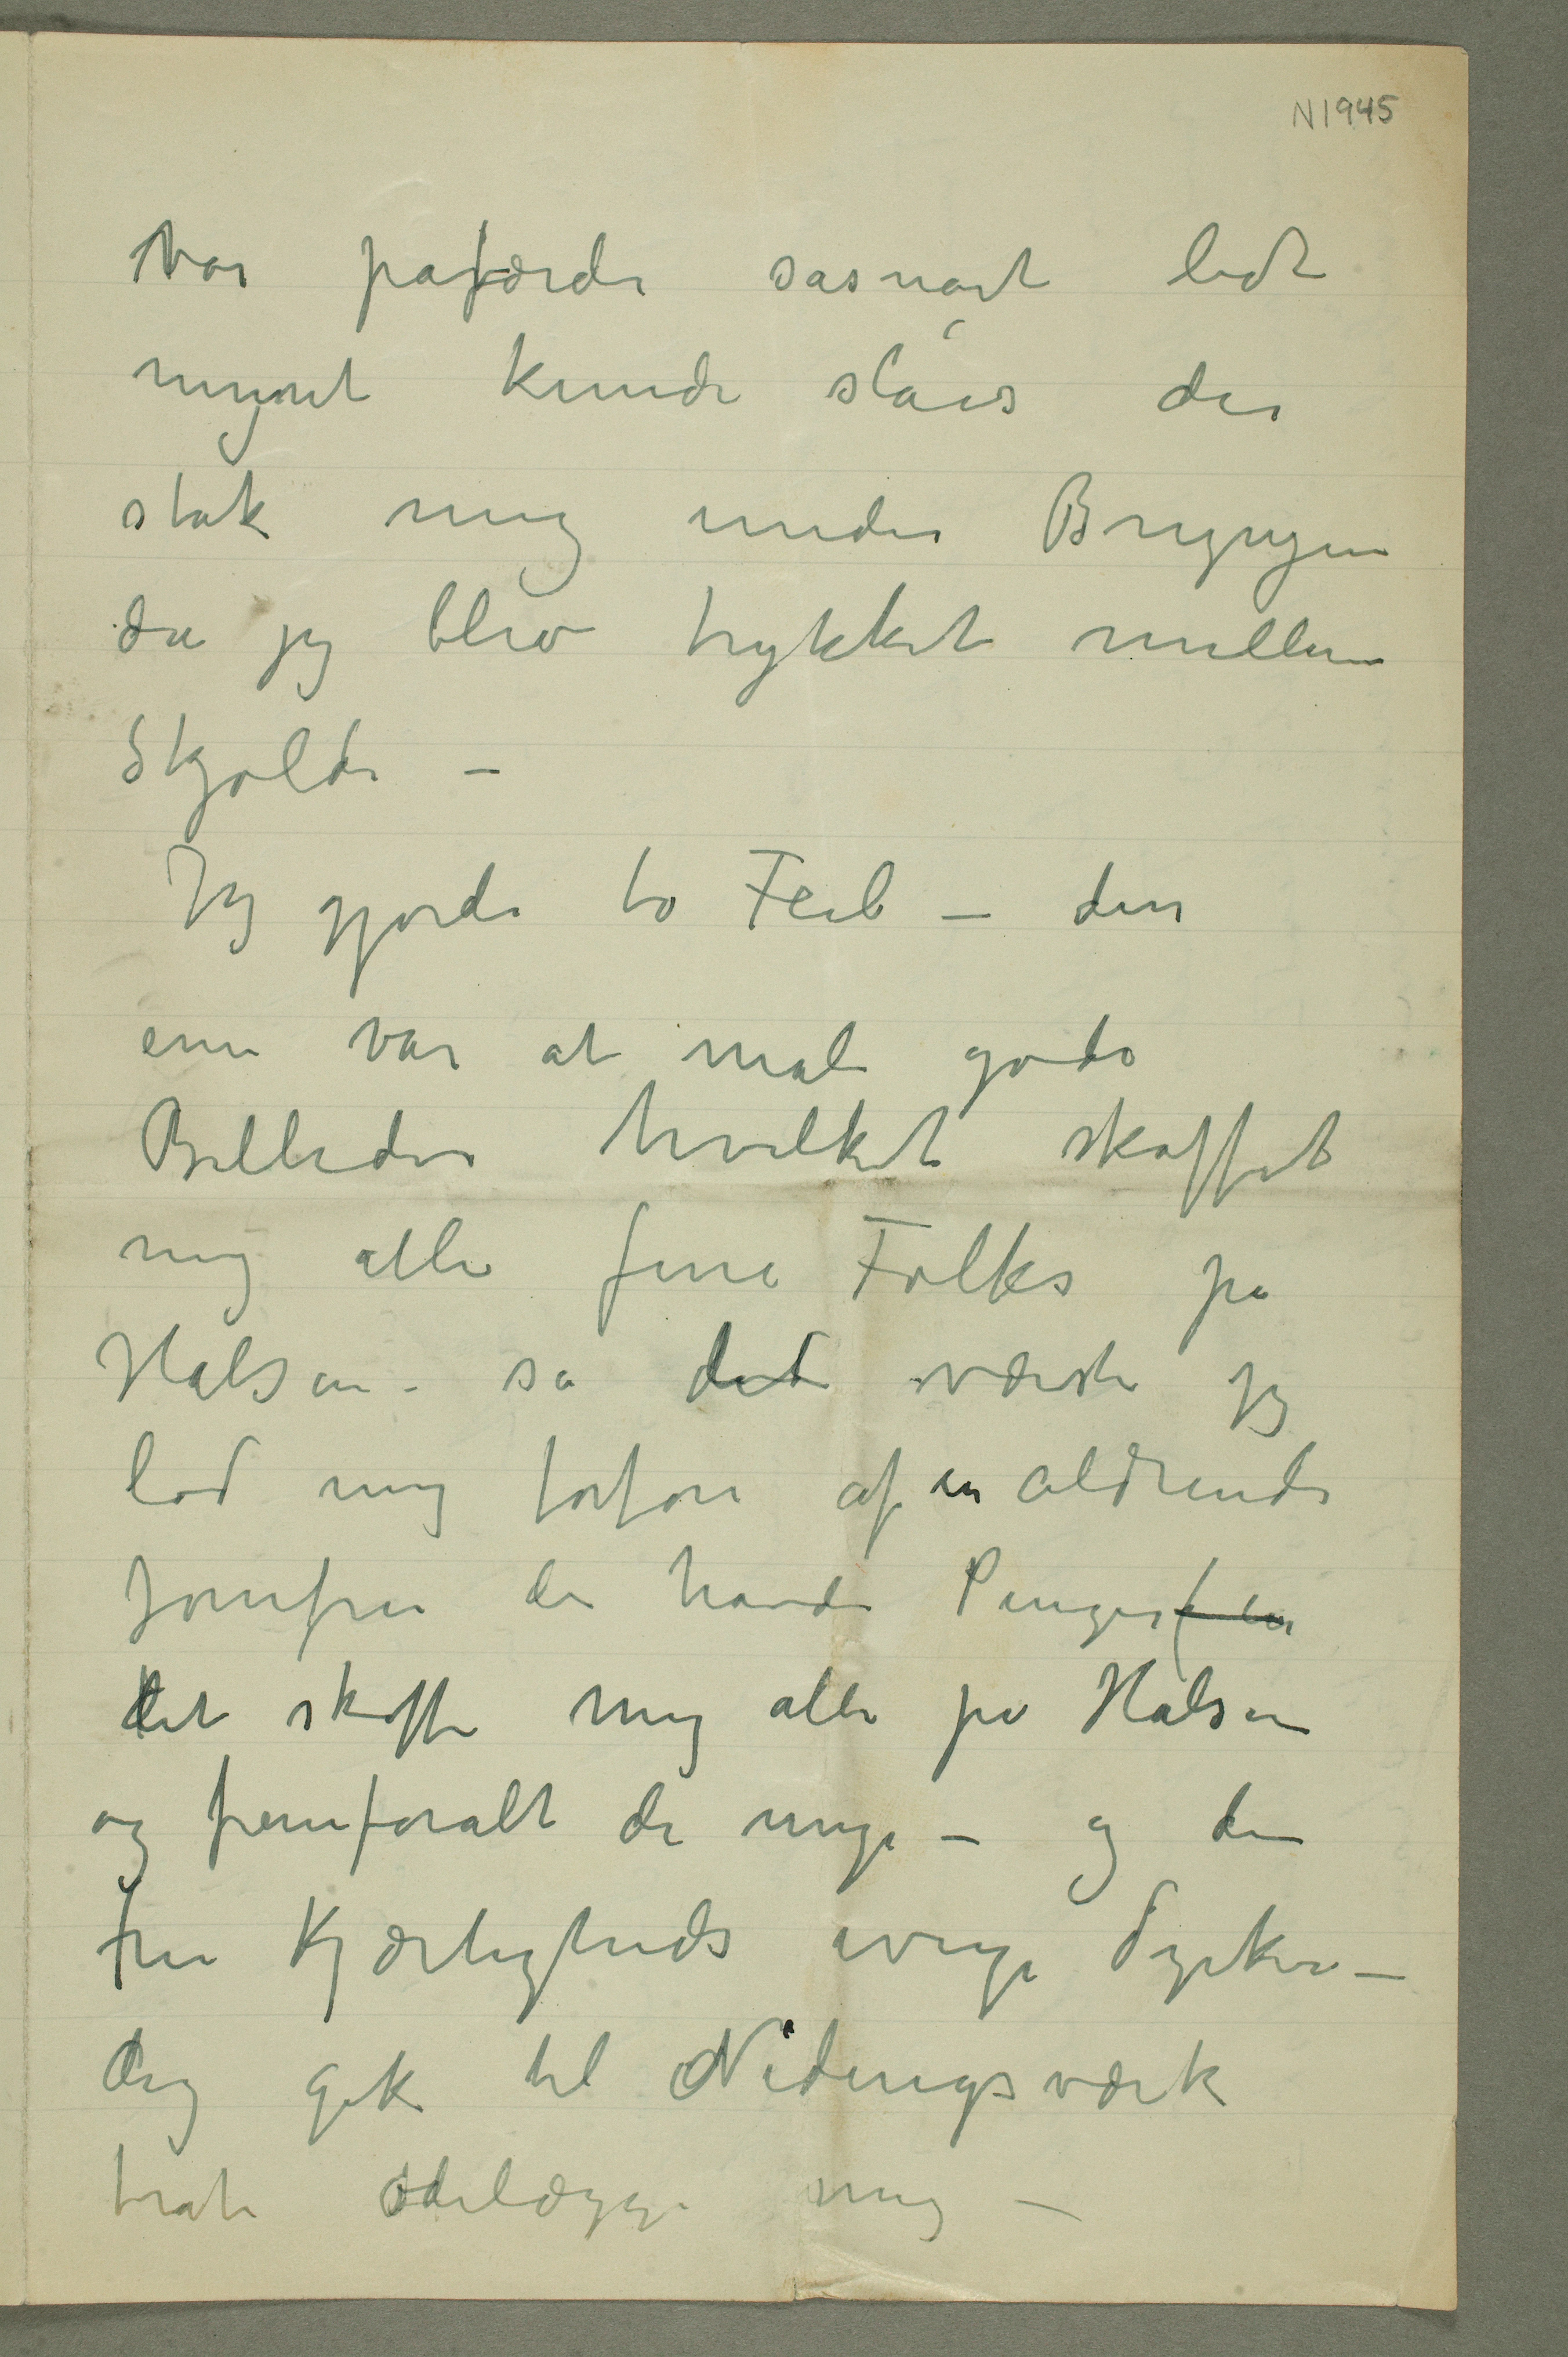 N 1945
var påfærde såsnart lidt
mynt kunde slåes der
stak mig under Bryggen
da jeg blev trykket mellem
Skjolde –
Jeg gjorde to Feil – den
ene var at male gode
Billeder hvilket skaffet
mig alle fine Folks på
Halsen – så det værste jeg
lod mig forføre af en aldrende
Jomfru der havde Penger
det skaffe mig alle på Halsen
og fremforalt de unge – og den
frie Kjærligheds ivrige Dyrkere –
Og gik til Nidingsværk
trak ødelægge mig –